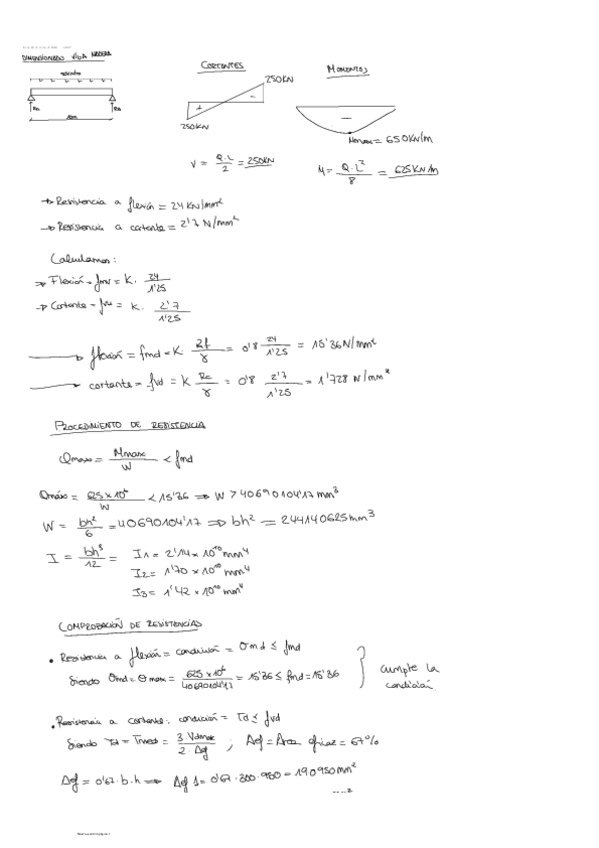 DIMENSIONADO VIGA MADERA
CORTANTES
MOMENTOS
250KN
+
-
250KN
-
Mmax = 650KN/m
V = Q·L / 2 = 250KN
M = Q·L² / 8 = 625 KN/m
→ Resistencia a flexión = 24 KN/mm²
→ Resistencia a cortante = 2'7 N/mm²
Calculamos:
→ Flexión - fmd = K · 24 / 1'25
→ Cortante - fvd = K · 2'7 / 1'25
→ flexión = fmd = K Rf / γ = 0'8 24 / 1'25 = 15'36 N/mm²
→ cortante = fvd = K Rc / γ = 0'8 2'7 / 1'25 = 1'728 N/mm²
PROCEDIMIENTO DE RESISTENCIA
σmax = Mmax / W < fmd
σmáx = 625 x 10⁶ / W < 15'36 ⇒ W > 40690104'17 mm³
W = bh² / 6 = 40690104'17 ⇒ bh² = 244140625 mm³
I = bh³ / 12 = I1 = 2'14 x 10¹⁰ mm⁴
I2 = 1'70 x 10¹⁰ mm⁴
I3 = 1'42 x 10¹⁰ mm⁴
COMPROBACIÓN DE RESISTENCIAS
• Resistencia a flexión = condición = σmd ≤ fmd
Siendo σmd = σmax = 625 x 10⁶ / 40690104'17 = 15'36 ≤ fmd = 15'36
cumple la
condición.
• Resistencia a cortante: condición = τd ≤ fvd
Siendo τd = 3·Vdmax / 2·Aef ; Aef = Area eficaz = 67%
Aef = 0'67·b·h ⇒ Aef 1 = 0'67·300·980 = 190950 mm²